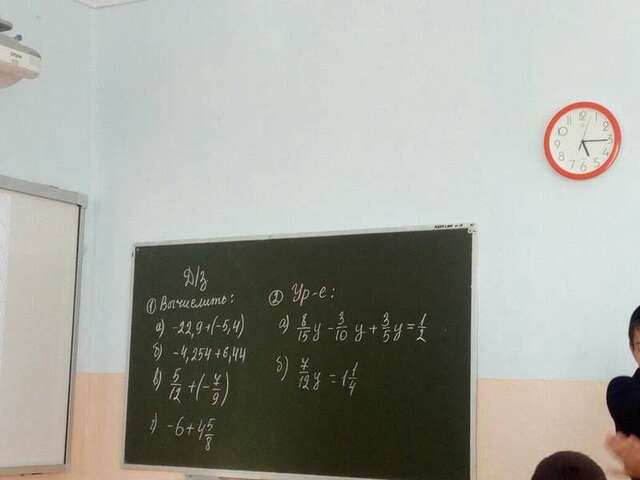 Д/з
① Вычислить:
а) -22,9+(-5,4)
б) -4,254+6,44
в) 5/12 + (-7/9)
г) -6+4 5/8
② Ур-е:
а) 8/15 y - 3/10 y + 3/5 y = 1/2
б) 7/12 y = 1 1/4
12
1
2
3
4
5
6
7
8
9
10
11